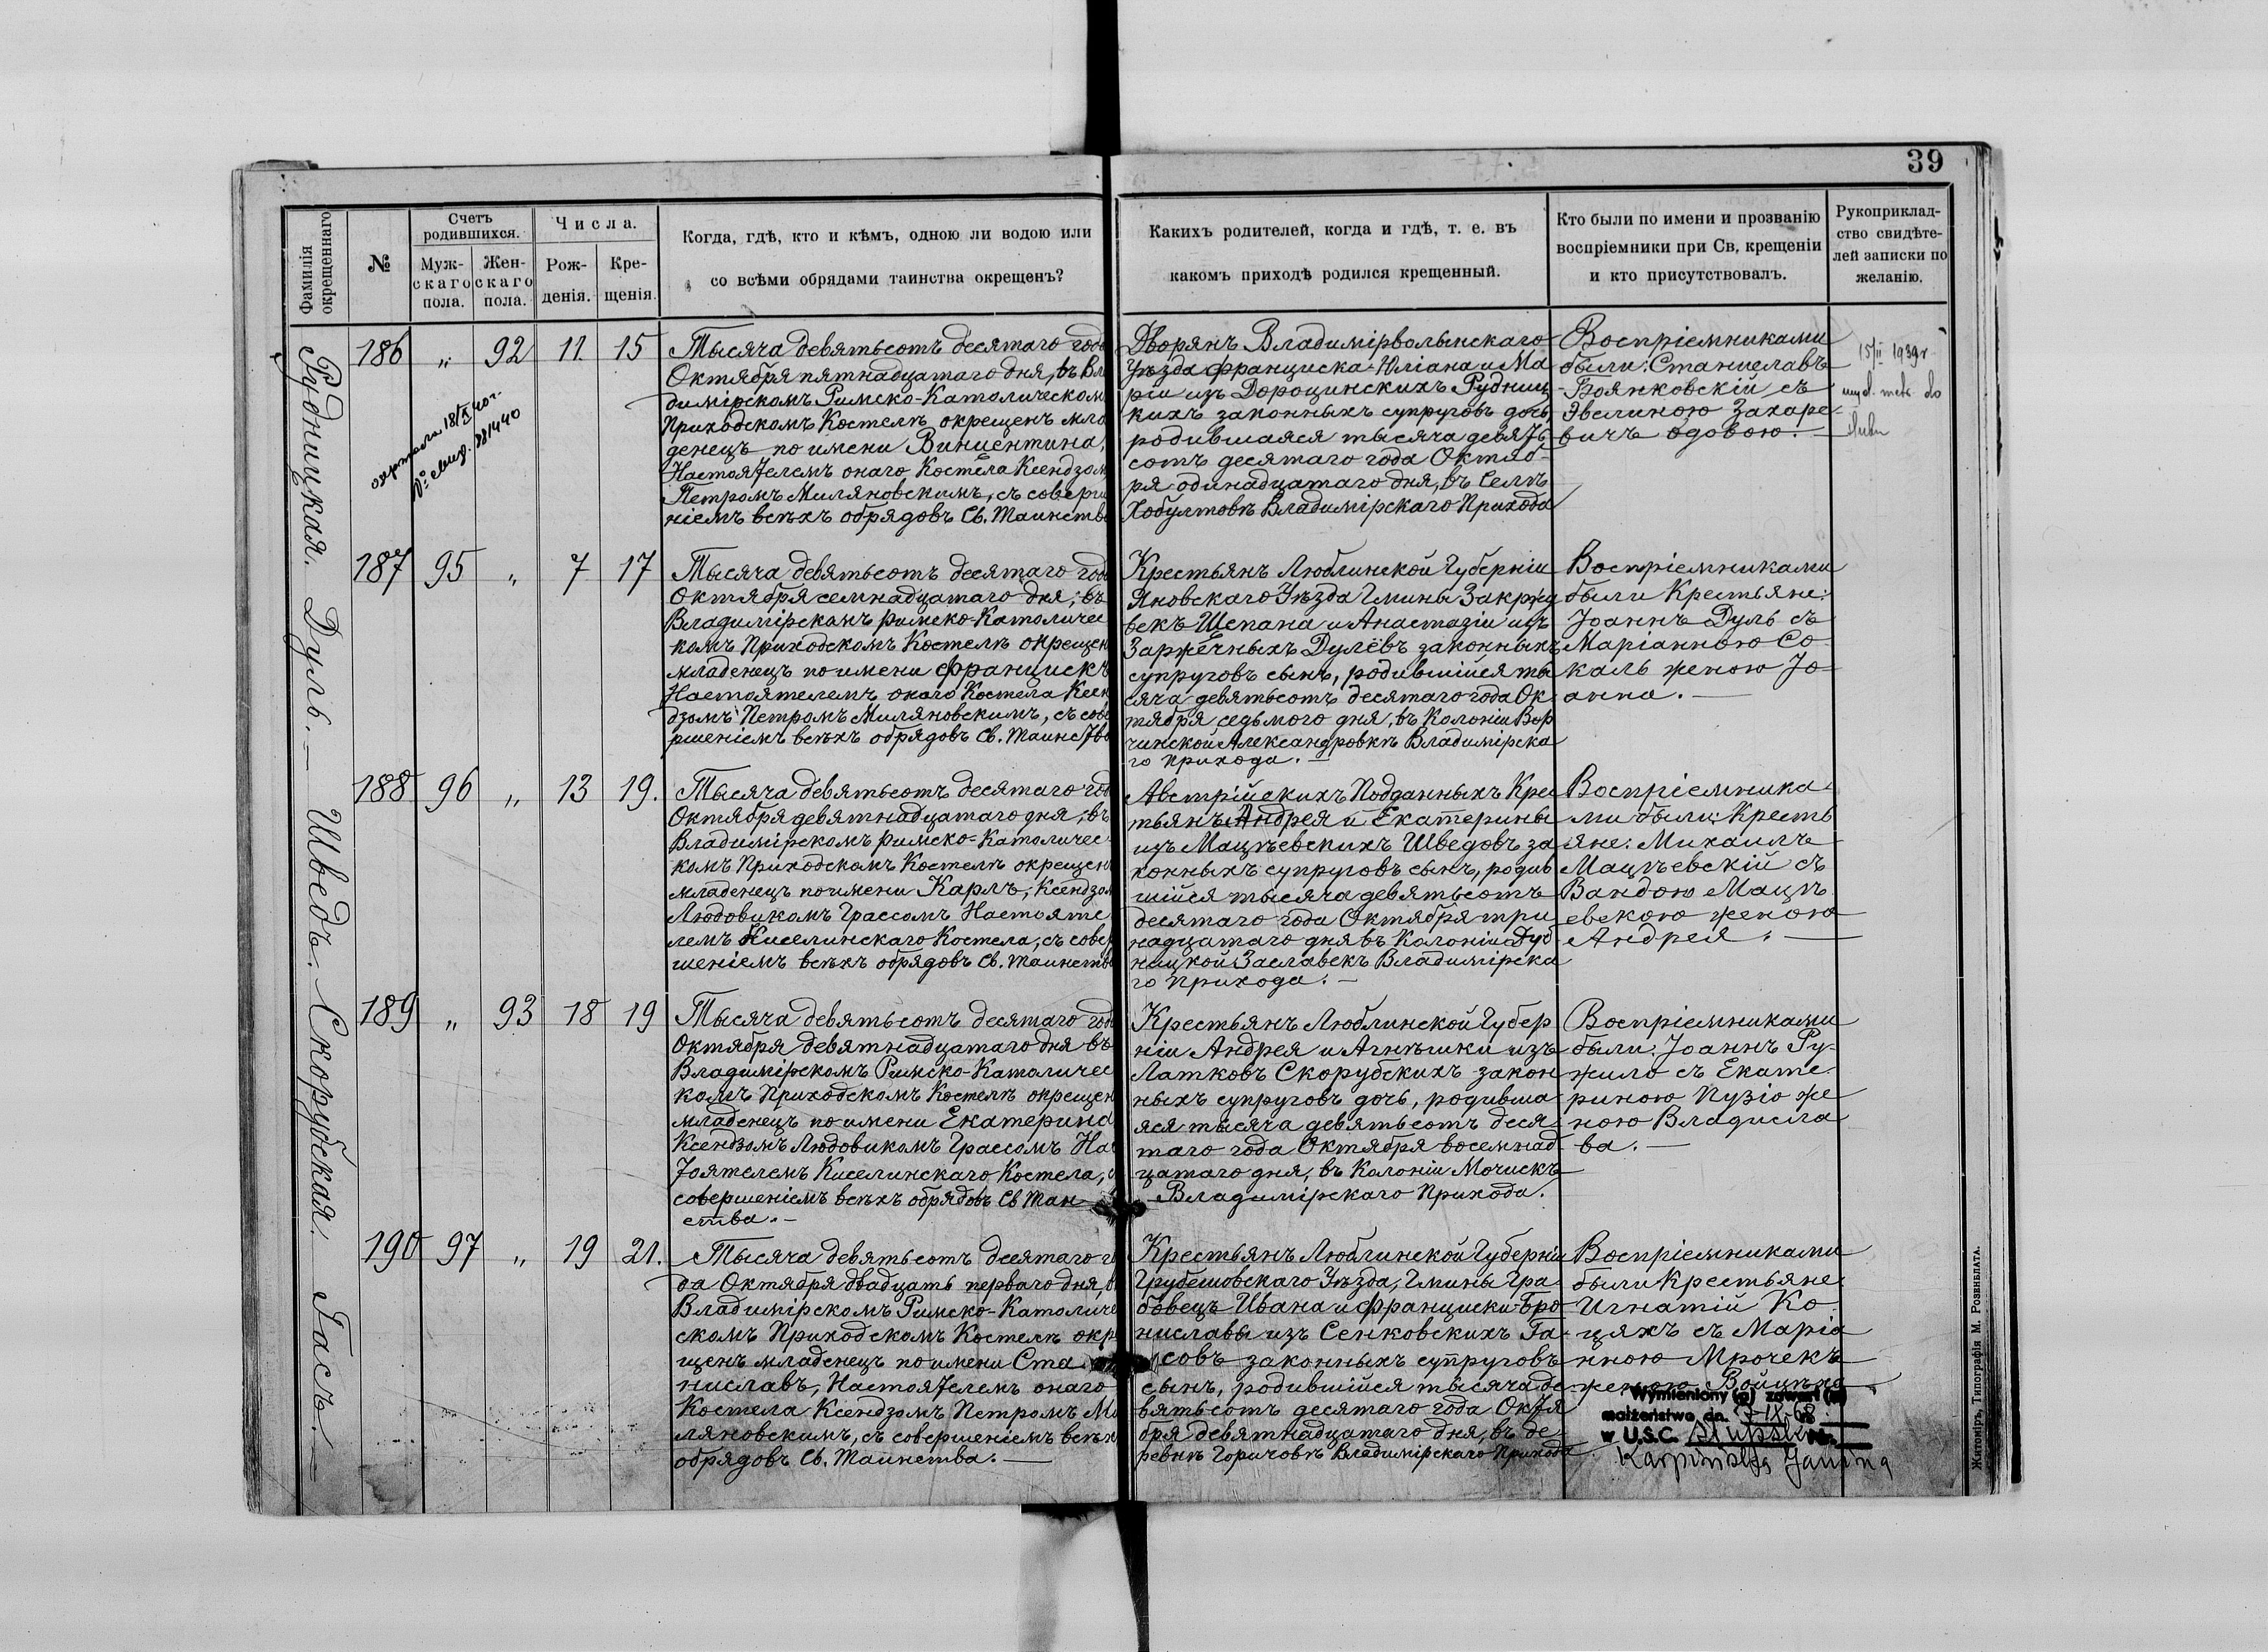 39
Фамилія окрещеннаго
№
Счетъ родившихся.
Муж-скаго пола.
Жен-скаго пола.
Числа.
Рож-денія.
Кре-щенія.
Когда, гдѣ, кто и кѣмъ, одною ли водою или
со всѣми обрядами таинства окрещенъ?
Какихъ родителей, когда и гдѣ, т. е. въ
какомъ приходѣ родился крещенный.
Кто были по имени и прозванію
воспріемники при Св, крещеніи
и кто присутствовалъ.
Рукоприклад-
ство свидѣте-
лей записки по
желанію.
Рудницкая.
186 „ 92 11 15
Тысяча девятьсотъ десятаго года
Октября пятнадцатаго дня, въ Вла
димірскомъ Римско-Католическом
Приходскомъ Костелѣ окрещенъ мла
денецъ по имени Винцентина,
Настоятелемъ онаго Костела Ксендзом
Петромъ Миляновскимъ, съ соверше
ніемъ всѣхъ обрядовъ Св. Таинства
Дворянъ Владимірволынскаго
Уѣзда Франциска-Юліана и Ма
ріи изъ Дороцинскихъ Рудниц
кихъ законныхъ супруговъ дочь
родившаяся тысяча девять
сотъ десятаго года Октяб-
ря одинадцатаго дня, въ Селѣ
Хобултовѣ Владимірскаго Прихода
Воспріемниками
были: Станиславъ
Боянковскій съ
Эвелиною Захаре
вичъ вдовою.
15/II 1939 г.
Дуль.
187 95 „ 7 17
Тысяча девятьсотъ десятаго года
Октября семнадцатаго дня, въ
Владимірскомъ Римско-Католичес
комъ Приходскомъ Костелѣ окрещен
младенецъ по имени Францискъ
Настоятелемъ онаго Костела Ксен
дзомъ Петромъ Миляновскимъ, съ сове
ршеніемъ всѣхъ обрядовъ Св. Таинства
Крестьянъ Люблинской Губерніи
Яновскаго Уѣзда Гмины Закржу
векъ Щепана и Анастазіи изъ
Заржечныхъ Дулёвъ законныхъ
супруговъ сынъ, родившійся ты
сяча девятьсотъ десятаго года Ок
тября седьмого дня, въ Колоніи Вор
чинской Александровкѣ Владимірска
го прихода.
Воспріемниками
были Крестьяне:
Іоаннъ Дуль съ
Маріанною Со
каль женою Іо
анна.
Шведъ.
188 96 „ 13 19.
Тысяча девятьсотъ десятаго год
Октября девятнадцатаго дня, въ
Владимірскомъ Римско-Католичес
комъ Приходскомъ Костелѣ окрещен
младенецъ по имени Карлъ, Ксендзом
Людовикомъ Грассомъ Настояте
лемъ Киселинскаго Костела, съ совер
шеніемъ всѣхъ обрядовъ Св. Таинства
Австрійскихъ Подданныхъ Крес
тьянъ Андрея и Екатерины
изъ Мацѣевскихъ Шведовъ за
конныхъ супруговъ сынъ, родив
шійся тысяча девятьсотъ
десятаго года Октября три
надцатаго дня въ Колоніи Дуб
ницкой Заславекъ Владимірска
го прихода.
Воспріемника
ми были: Кресть
яне: Михаилъ
Мацѣевскій съ
Вандою Мацѣ
евскою женою
Андрея.
Скорубская.
189 „ 93 18 19
Тысяча девятьсотъ десятаго года
Октября девятнадцатаго дня въ
Владимірскомъ Римско-Католичес
комъ Приходскомъ Костелѣ окрещен
младенецъ по имени Екатерина
Ксендзомъ Людовикомъ Грассомъ Нас
тоятелемъ Киселинскаго Костела,
совершеніемъ всѣхъ обрядовъ Св Таин
ства.
Крестьянъ Люблинской Губер
ніи Андрея и Агнѣшки изъ
Латковъ Скорубскихъ закон
ныхъ супруговъ дочь, родивша
яся тысяча девятьсотъ деся
таго года Октября восемнад
цатаго дня, въ Колоніи Мочискъ
Владимірскаго Прихода.
Воспріемниками
были: Іоаннъ Ру-
жило съ Екате
риною Пузіо же
ною Владисла
ва.
Гасъ.
190 97 „ 19 21.
Тысяча девятьсотъ десятаго го
да Октября двадцать перваго дня, въ
Владимірскомъ Римско-Католиче
скомъ Приходскомъ Костелѣ окре
щенъ младенецъ по имени Ста
ниславъ, Настоятелемъ онаго
Костела Ксендзомъ Петромъ Ми
ляновскимъ, съ совершеніемъ всѣхъ
обрядовъ Св. Таинства.
Крестьянъ Люблинской Губерніи
Грубешовскаго Уѣзда, Гмины Гра
бовецъ Ивана и Франциски-Бро
ниславы изъ Сенковскихъ Га
совъ законныхъ супруговъ
сынъ, родившійся тысяча де
вятьсотъ десятаго года Октя
бря девятнадцатаго дня, въ де
ревнѣ Горичовѣ Владимірскаго Прихода
Воспріемниками
были Крестьяне:
Игнатій Ко
цяхъ съ Маріа
нною Мрочекъ
женою Войцѣха
Wymieniony (a) zawarł (a)
małżeństwo dn. 7-IX-68
w U.S.C. Słupsk Nr.
Karpińska Janina
Житоміръ, Типографія М. Розенблата.